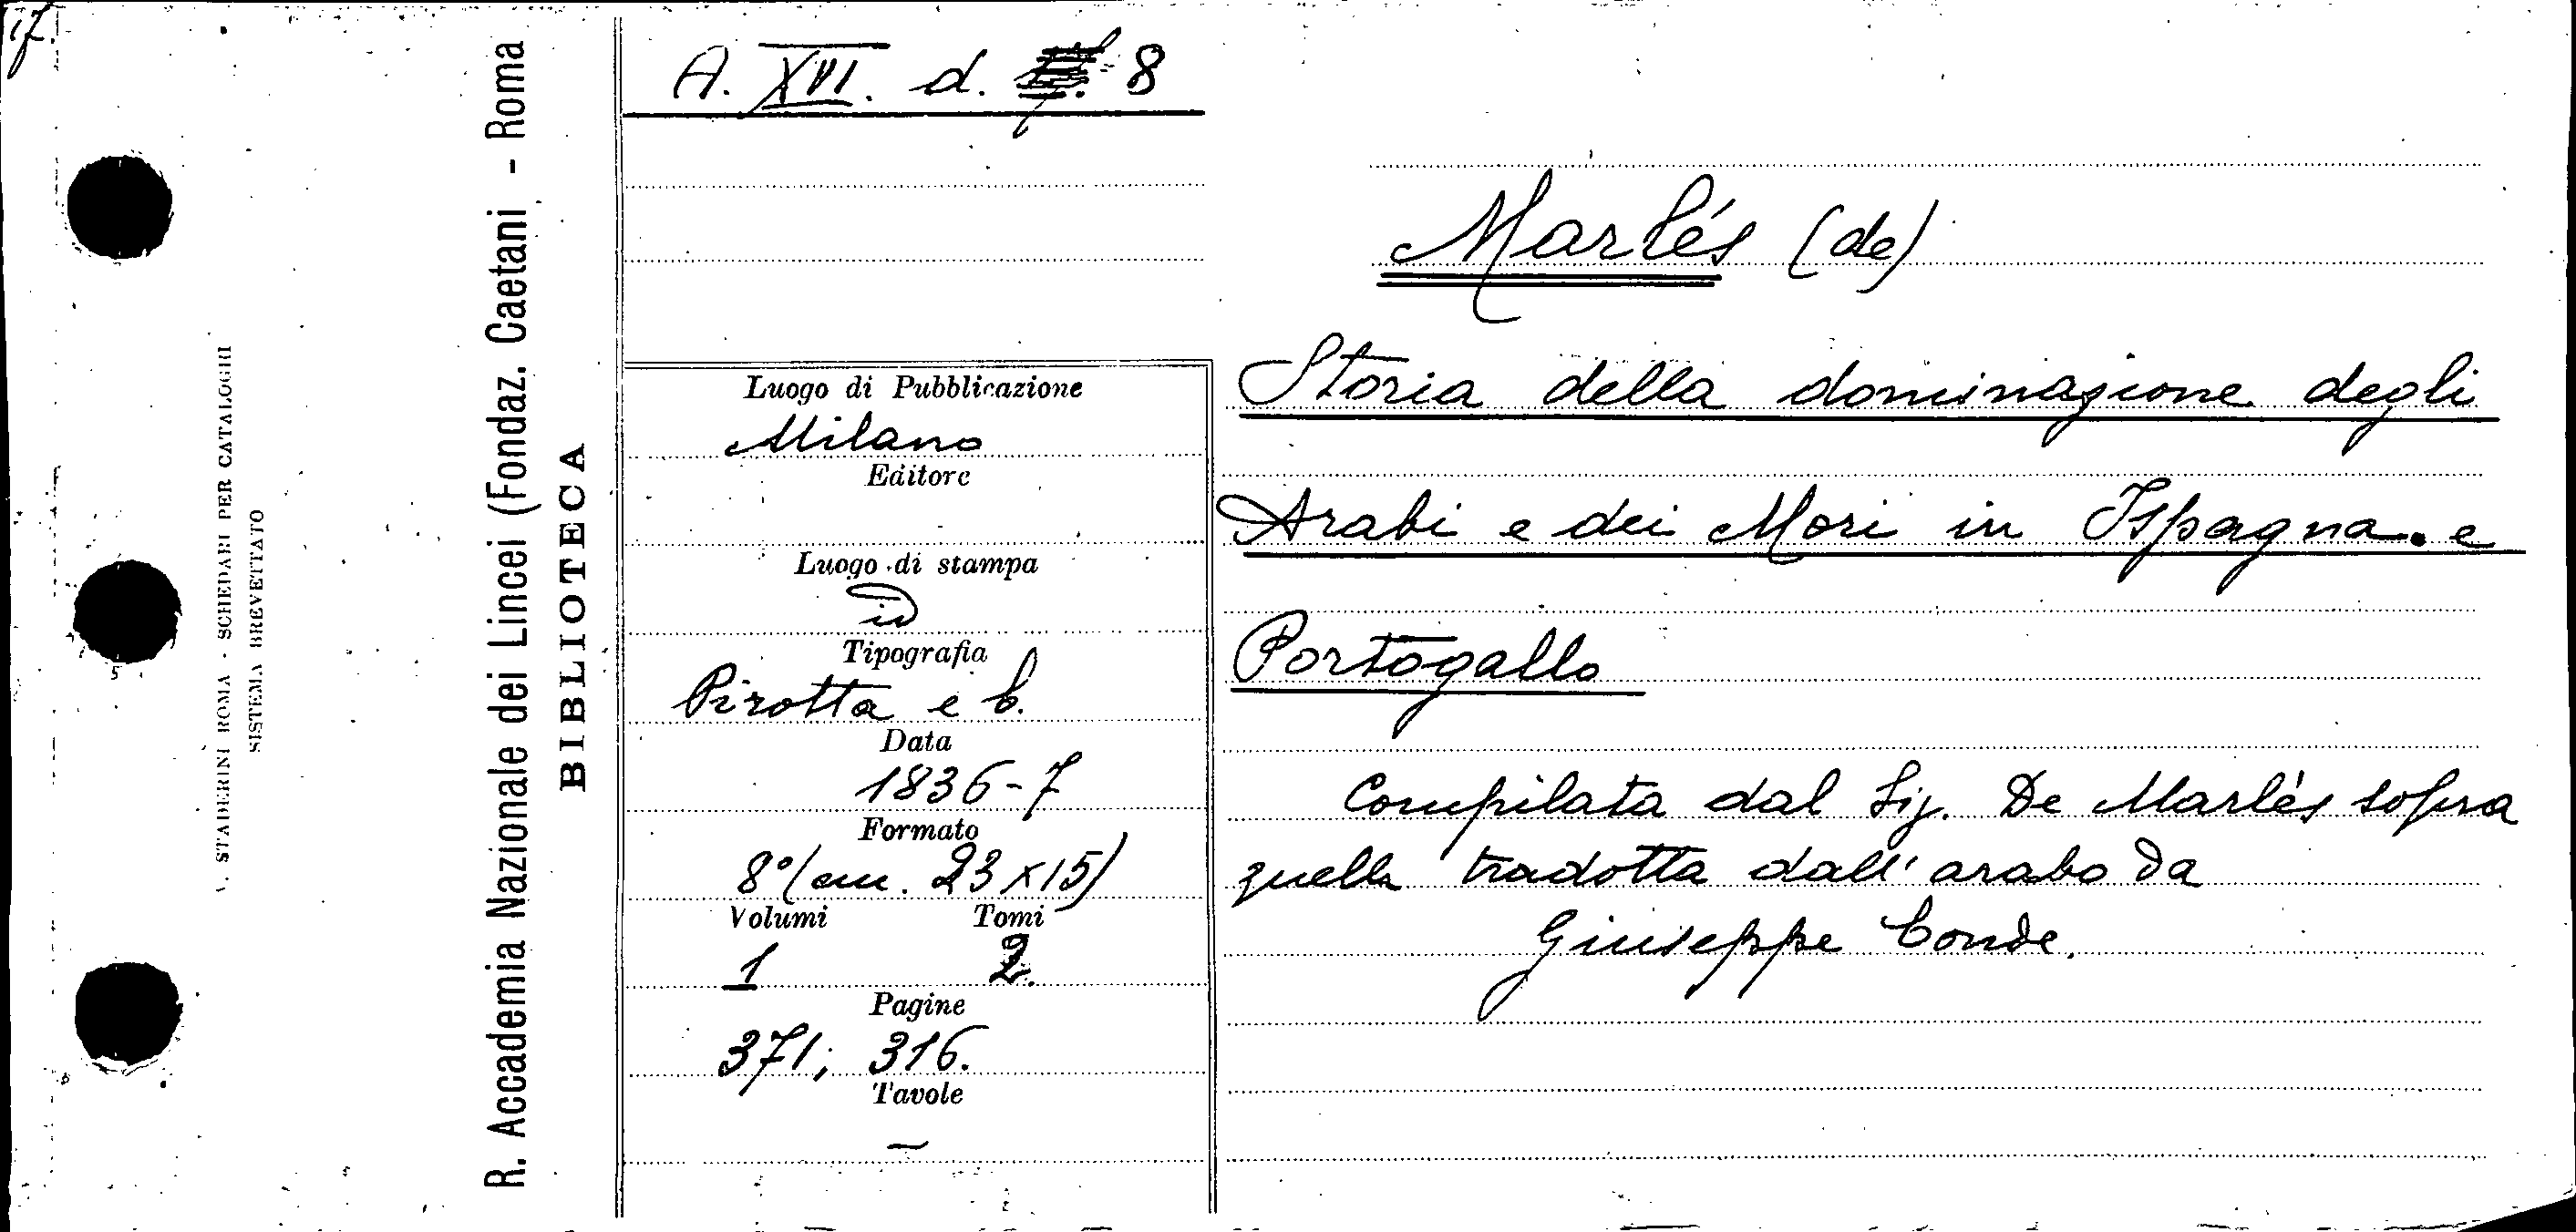 17.
A. XVI. d. 8
R. Accademia Nazionale dei Lincei (Fondaz. Caetani - Roma
BIBLIOTECA
A. STADERINI ROMA - SCHEDARI PER CATALOGHI
SISTEMA BREVETTATO
Luogo di Pubblicazione
Milano
Editore
Luogo di stampa
id
Tipografia
Pirotta e C.
Data
1836-7
Formato
8° (cm. 23 x 15)
Volumi Tomi
1 2.
Pagine
371; 316.
Tavole
—
Marlés (de)
Storia della dominazione degli
Arabi e dei Mori in Ispagna. e
Portogallo
Compilata dal Sig. De Marlés sopra
quella tradotta dall' arabo da
Giuseppe Conde.